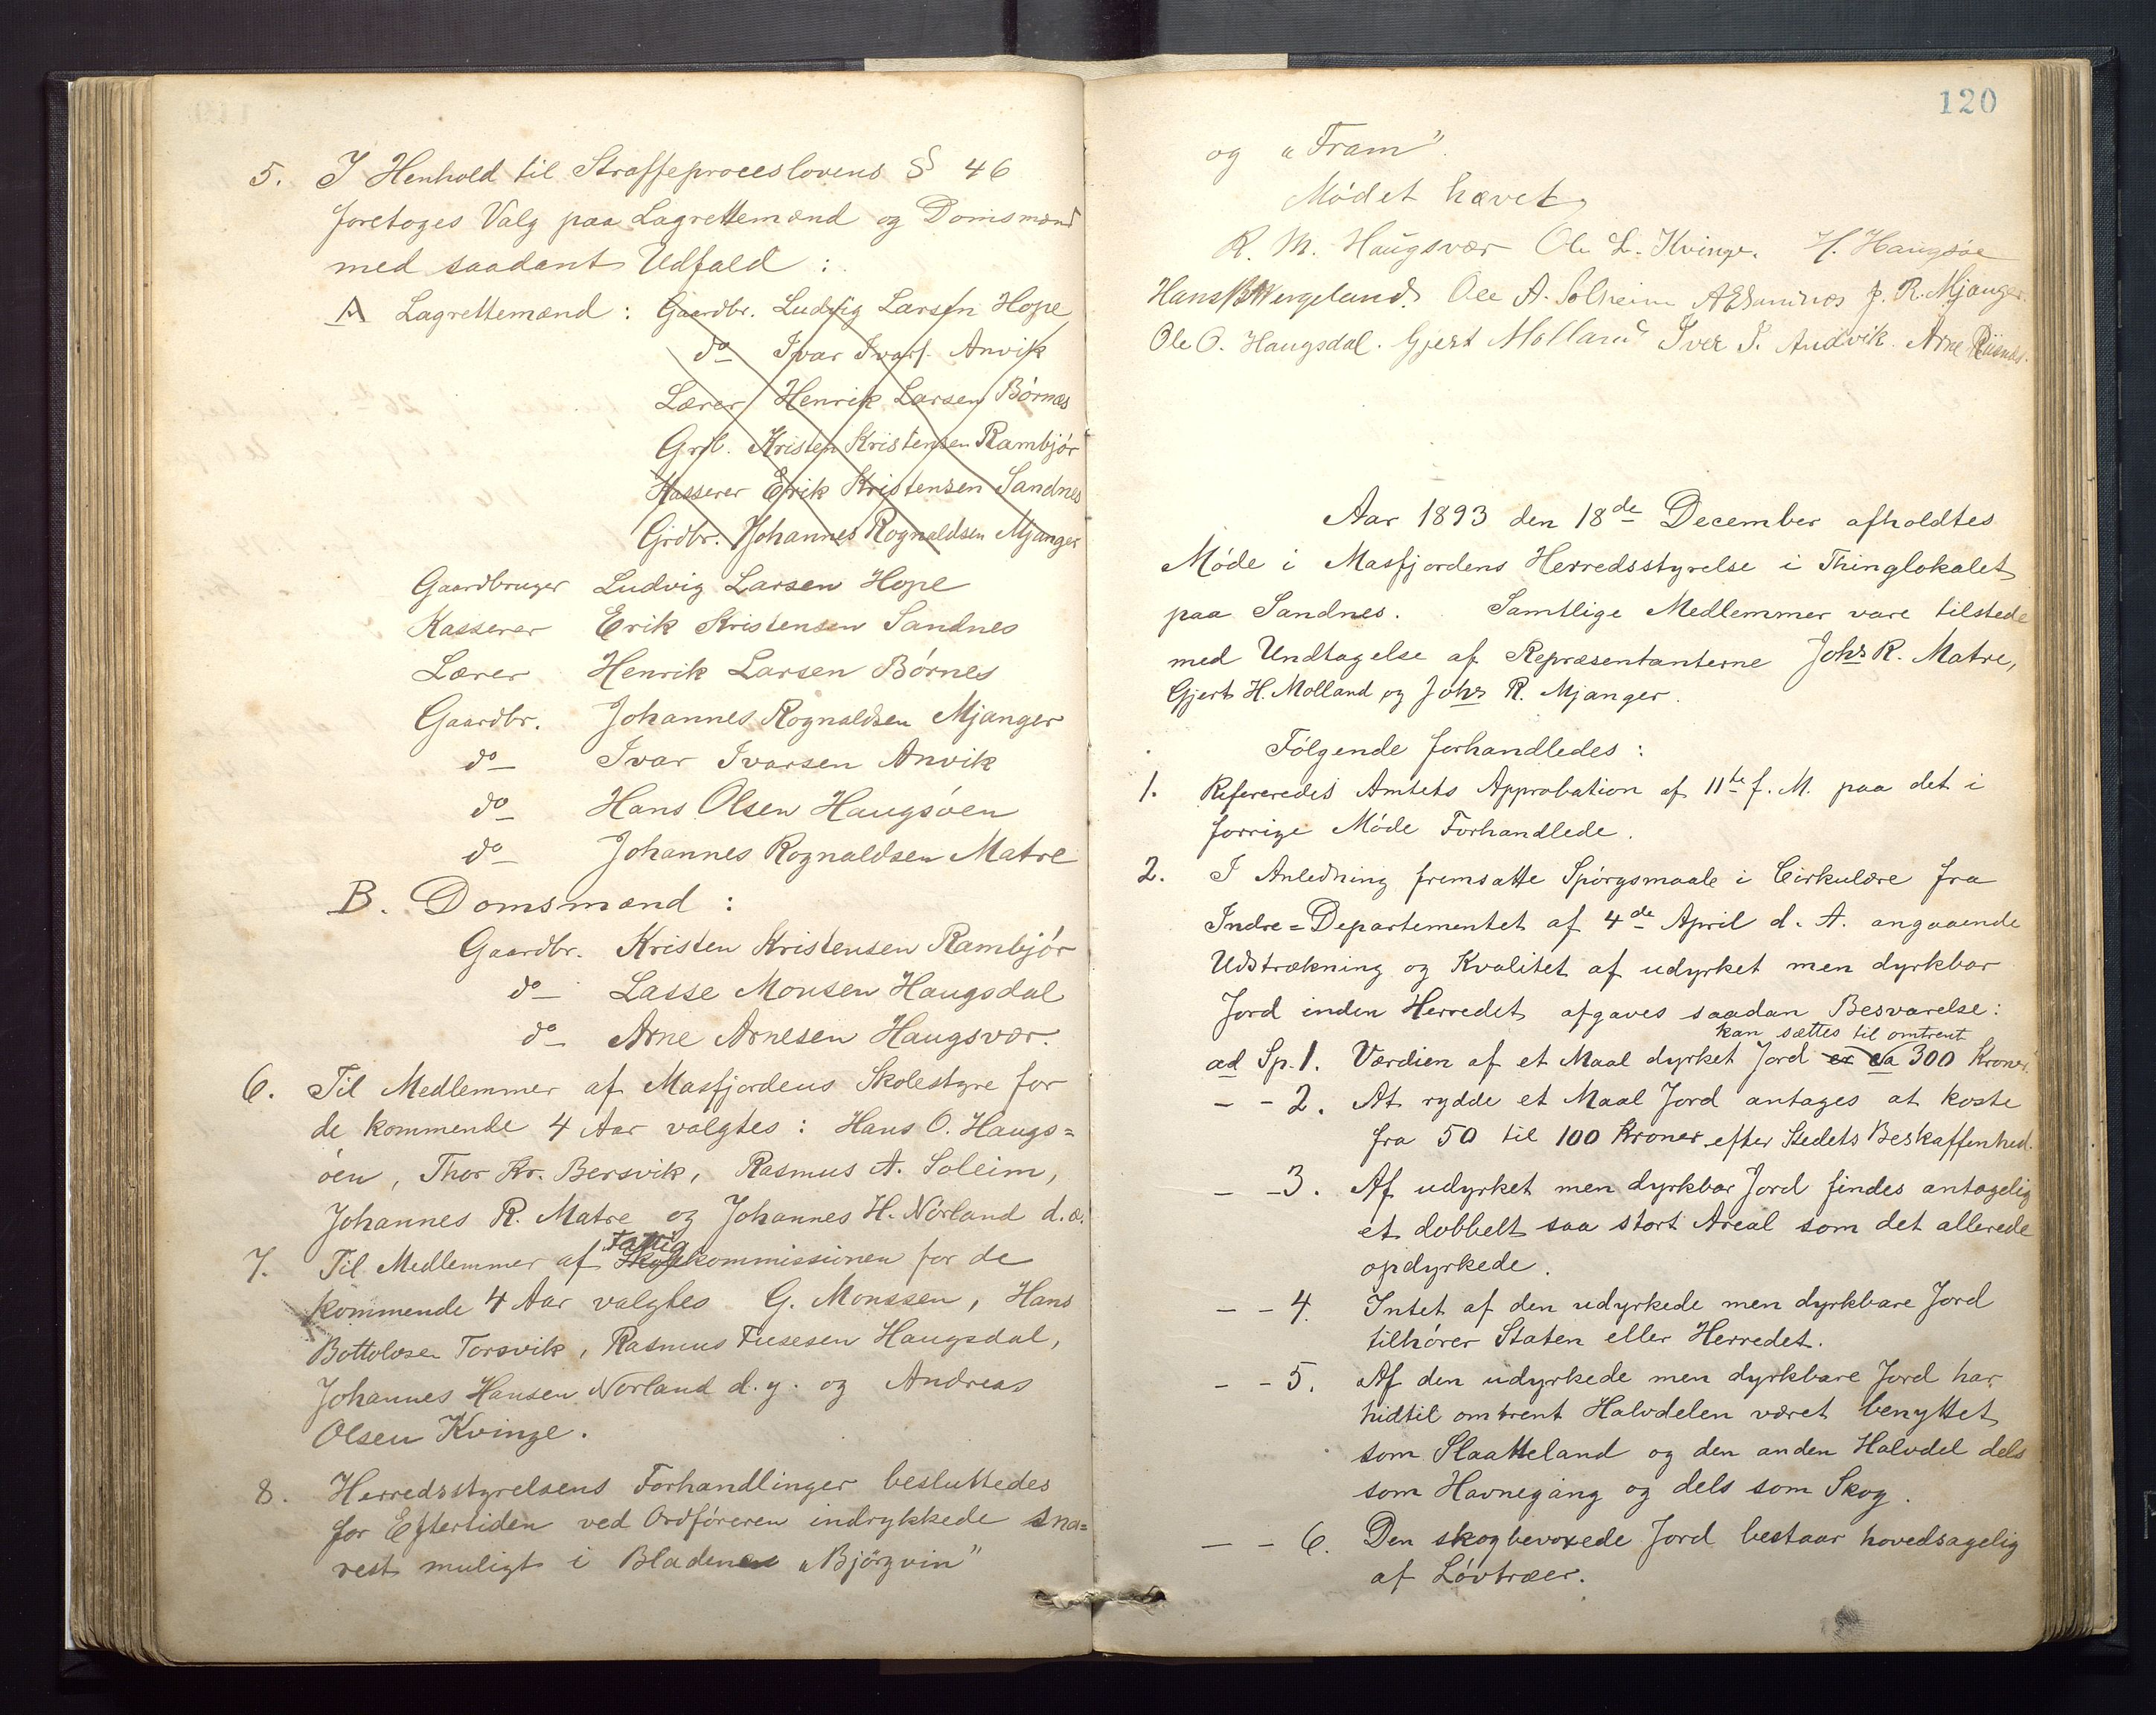 5. I Henhold til Straffeproceslovens § 46
foretoges Valg paa Lagrettemænd og Domsmænd
med saadant Udfald :
A Lagrettemænd : Gaardbr. Ludvig Larsen Hope
do Ivar Ivars. Anvik
Lærer Henrik Larsen Börnes
Grdb. Kristen Kristensen Rambjör
Kasserer Erik Kristensen Sandnes
Grdbr. Johannes Rognaldsen Mjanger
Gaardbruger Ludvig Larsen Hope
Kasserer Erik Kristensen Sandnes
Lærer Henrik Larsen Börnes
Gaardbr. Johannes Rognaldsen Mjanger
do Ivar Ivarsen Anvik
do Hans Olsen Haugsöen
do Johannes Rognaldsen Matre
B. Domsmænd :
Gaardbr. Kristen Kristensen Rambjör
do Lasse Monsen Haugsdal
do Arne Arnesen Haugsvær.
6. Til Medlemmer af Masfjordens Skolestyre for
de kommende 4 Aar valgtes : Hans O. Haugs=
öen, Thor Kr. Bersvik, Rasmus A. Soleim,
Johannes R. Matre og Johannes H. Nörland d.æ.
7. Til Medlemmer af Fattigkommissionen for de
kommende 4 Aar valgtes G. Monssen, Hans
Bottolvsen Torsvik, Rasmus Fusesen Haugsdal,
Johannes Hansen Norland d.y. og Andreas
Olsen Kvinge.
8. Herredsstyrelsens Forhandlinger besluttedes
for Eftertiden ved Ordföreren indrykkede sna=
rest muligt i Bladene „Björgvin"
120
og „Fram".
Mödet hævet
R. M. Haugsvær Ole L. Kvinge. H. Haugsöe
Hans B Wergeland. Ole A. Solheim J. R. Mjanger.
Ole O. Haugsdal. Gjert Molland Iver I. Andvik. Arne Riisnæs.
Aar 1893 den 18de December afholdtes
Möde i Masfjordens Herredsstyrelse i Thinglokalet
paa Sandnes. Samtlige Medlemmer vare tilstede
med Undtagelse af Repræsentanterne Johs R. Matre,
Gjert H. Molland og Johs R. Mjanger.
Fölgende forhandledes :
1. Refereredes Amtets Approbation af 11te f. M. paa det i
forrige Möde Forhandlede.
2. I Anledning fremsatte Spörgsmaale i Cirkulære fra
Indre=Departementet af 4de April d. A. angaaende
Udstrækning og Kvalitet af udyrket men dyrkbar
Jord inden Herredet afgaves saadan Besvarelse :
kan sættes til omtrent
ad Sp. 1. Værdien af et Maal dyrket Jord er ca 300 Kroner.
– – 2. At rydde et Maal Jord antages at koste
fra 50 til 100 Kroner efter Stedets Beskaffenhed.
– – 3. Af udyrket men dyrkbar Jord findes antagelig
et dobbelt saa stort Areal som det allerede
opdyrkede.
– – 4. Intet af den udyrkede men dyrkbare Jord
tilhörer Staten eller Herredet.
– – 5. Af den udyrkede men dyrkbare Jord har
hidtil omtrent Halvdelen været benyttet
som Slaatteland og den anden Halvdel dels
som Havnegang og dels som Skog.
– – 6. Den skogbevoxede Jord bestaar hovedsagelig
af Lövtræer.